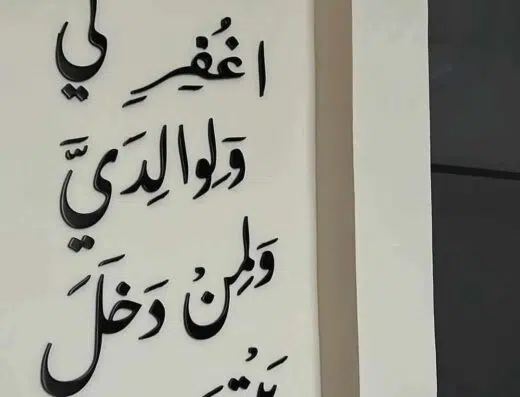 اغْفِرِ لي
وَلِوالِدَيَّ
وَلِمنْ دَخَلَ